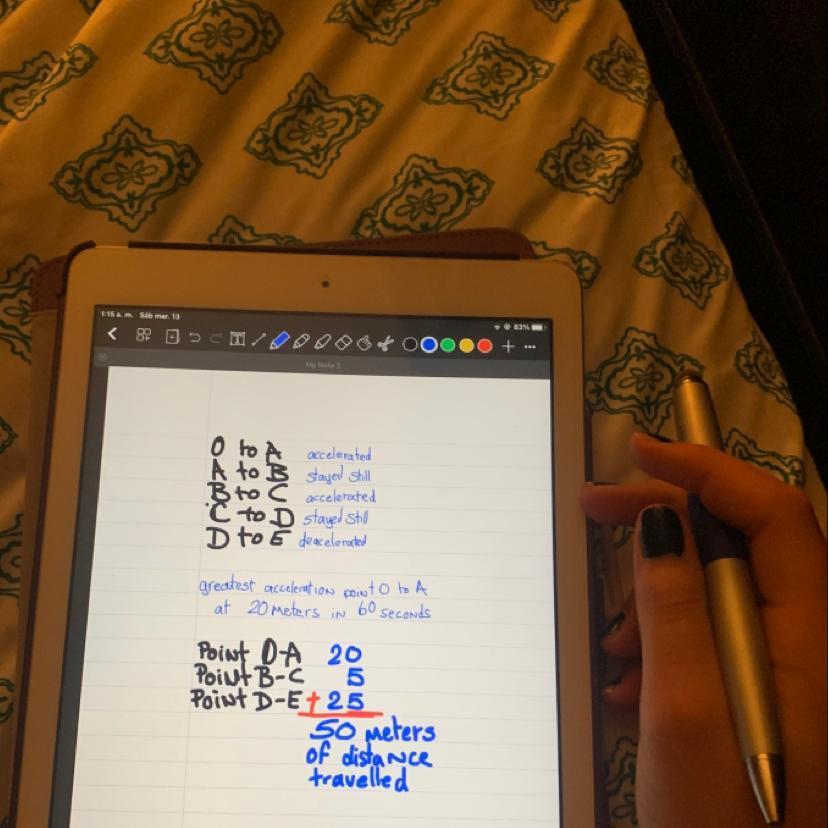 1:15 a. m. Sáb mar. 13
83%
My Note 3
O to A accelerated
A to B stayed still
B to C accelerated
C to D stayed still
D to E deacelerated
greatest acceleration point O to A
at 20 meters in 60 seconds
Point O-A 20
Point B-C 5
Point D-E + 25
50 meters
of distance
travelled